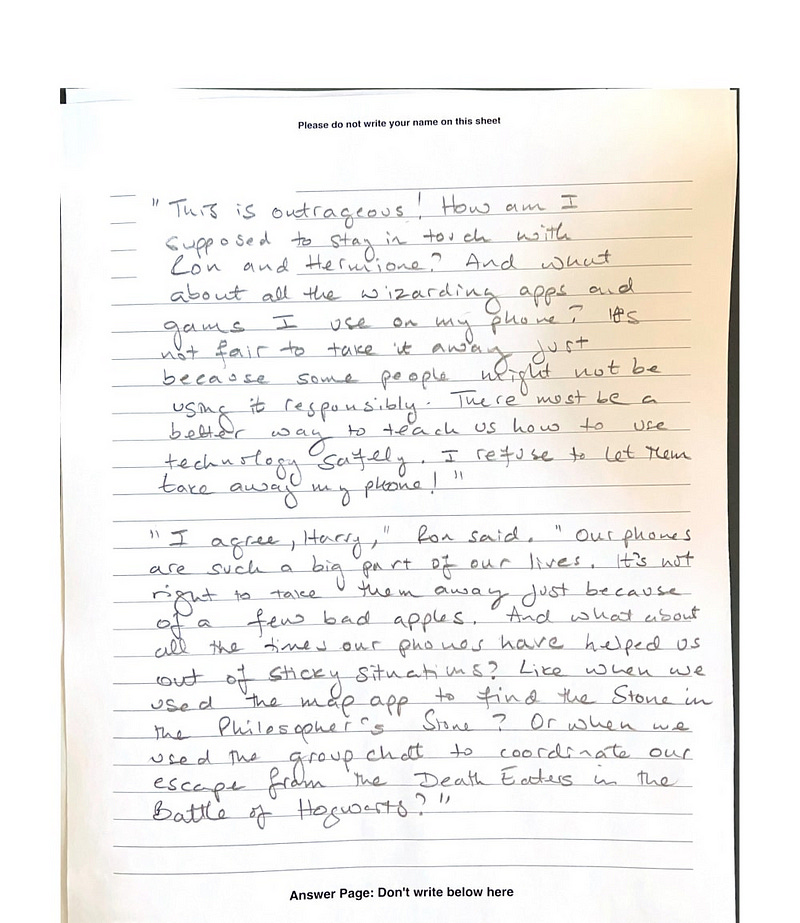 Please do not write your name on this sheet
"This is outrageous! How am I
supposed to stay in touch with
Ron and Hermione? And what
about all the wizarding apps and
gams I use on my phone? It's
not fair to take it away just
because some people might not be
using it responsibly. There must be a
better way to teach us how to use
technology safely. I refuse to let them
take away my phone!"
"I agree, Harry," Ron said. "Our phones
are such a big part of our lives. It's not
right to take them away just because
of a few bad apples. And what about
all the times our phones have helped us
out of sticky situations? Like when we
used the map app to find the Stone in
the Philosopher's Stone? Or when we
used the group chat to coordinate our
escape from the Death Eaters in the
Battle of Hogwarts?"
Answer Page: Don't write below here